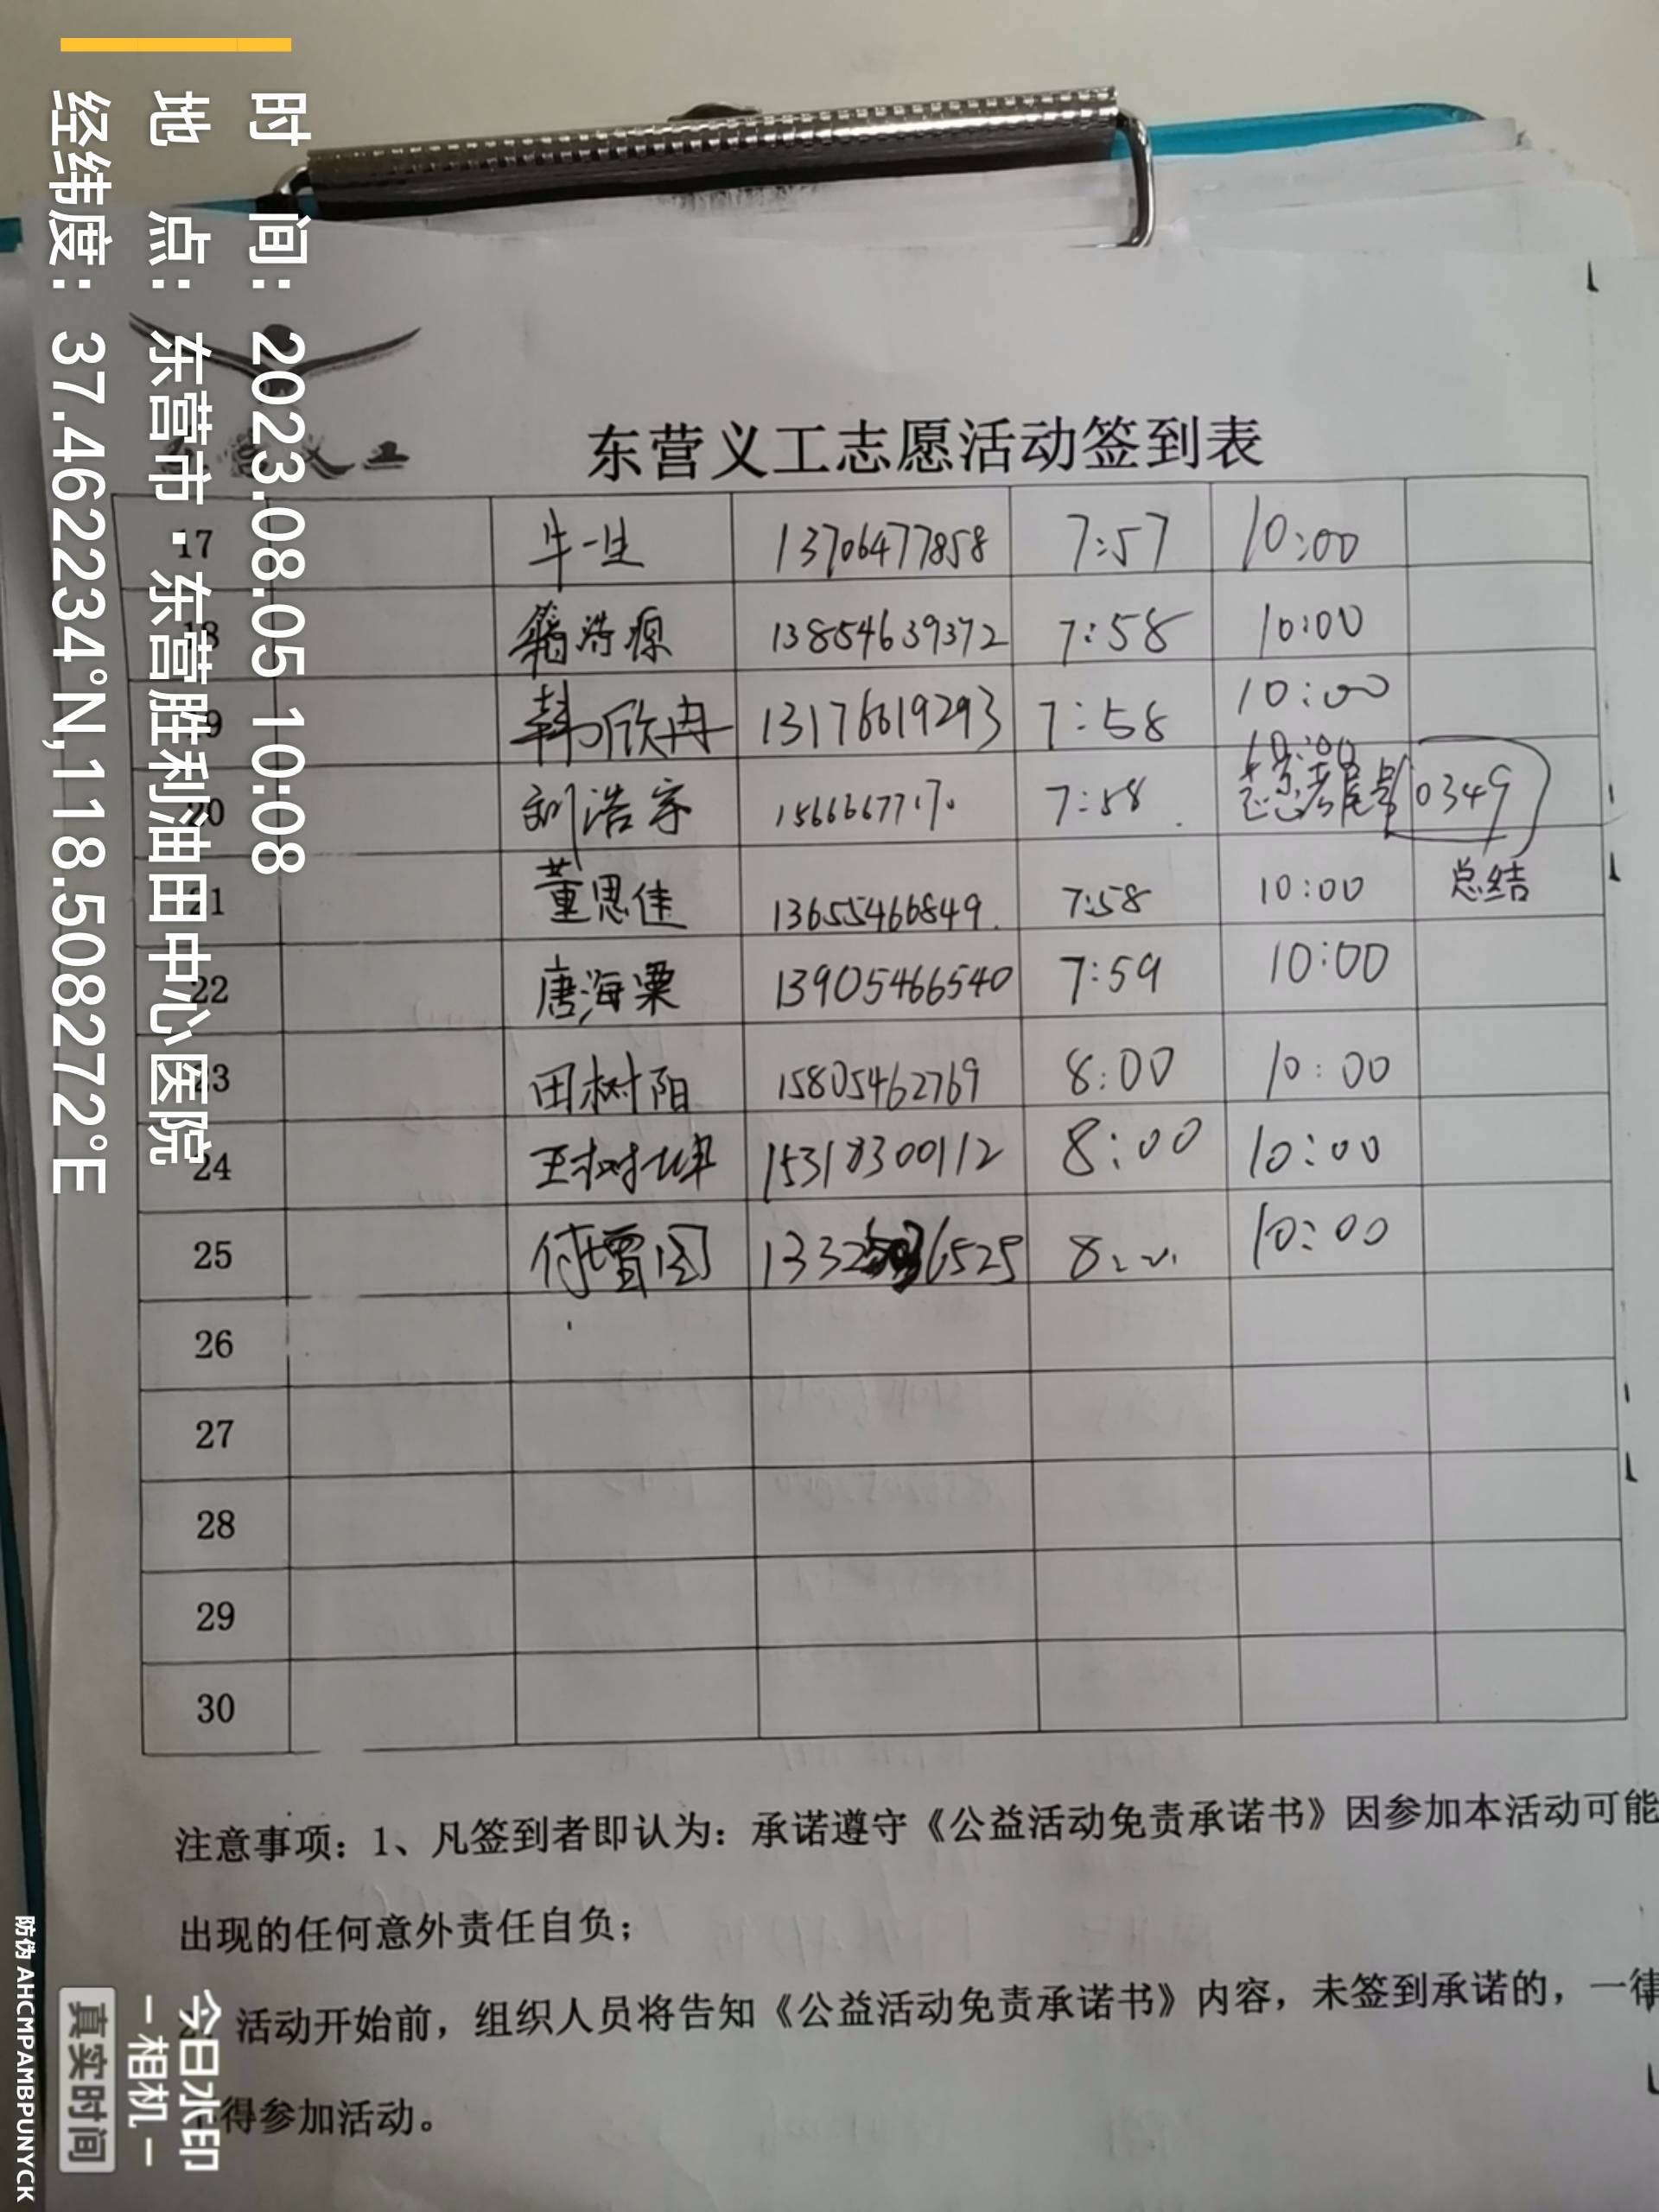 时间：2023.08.05 10:08
地点：东营市·东营胜利油田中心医院
经纬度：37.462234°N,118.508272°E
东营义工
东营义工志愿活动签到表
17 牛一生 13706477858 7:57 10:00
18 浩源 13854639372 7:58 10:00
19 韩欣冉 13176619293 7:58 10:00
20 刘浩宇 7:58 10:00
志愿者尾号 0349
21 董思佳 13655466849. 7:58 10:00 总结
22 唐海粟 13905466540 7:59 10:00
23 田树阳 15805462769 8:00 10:00
24 王树坤 15318300112 8:00 10:00
25 付 10:00
26
27
28
29
30
注意事项：1、凡签到者即认为：承诺遵守《公益活动免责承诺书》因参加本活动可能
出现的任何意外责任自负；
活动开始前，组织人员将告知《公益活动免责承诺书》内容，未签到承诺的，一律
得参加活动。
今日水印
－相机－
真实时间
防伪 AHCMPAMBPUNYCK